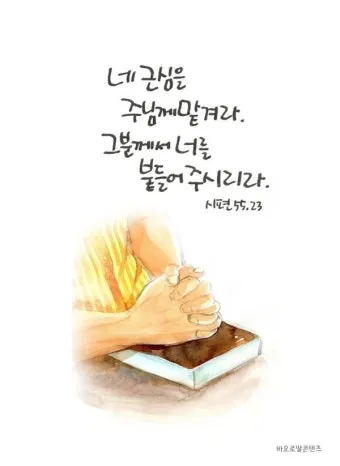 네 근심을
주님께 맡겨라.
그분께서 너를
붙들어 주시리라.
시편 55,23
바오로딸콘텐츠